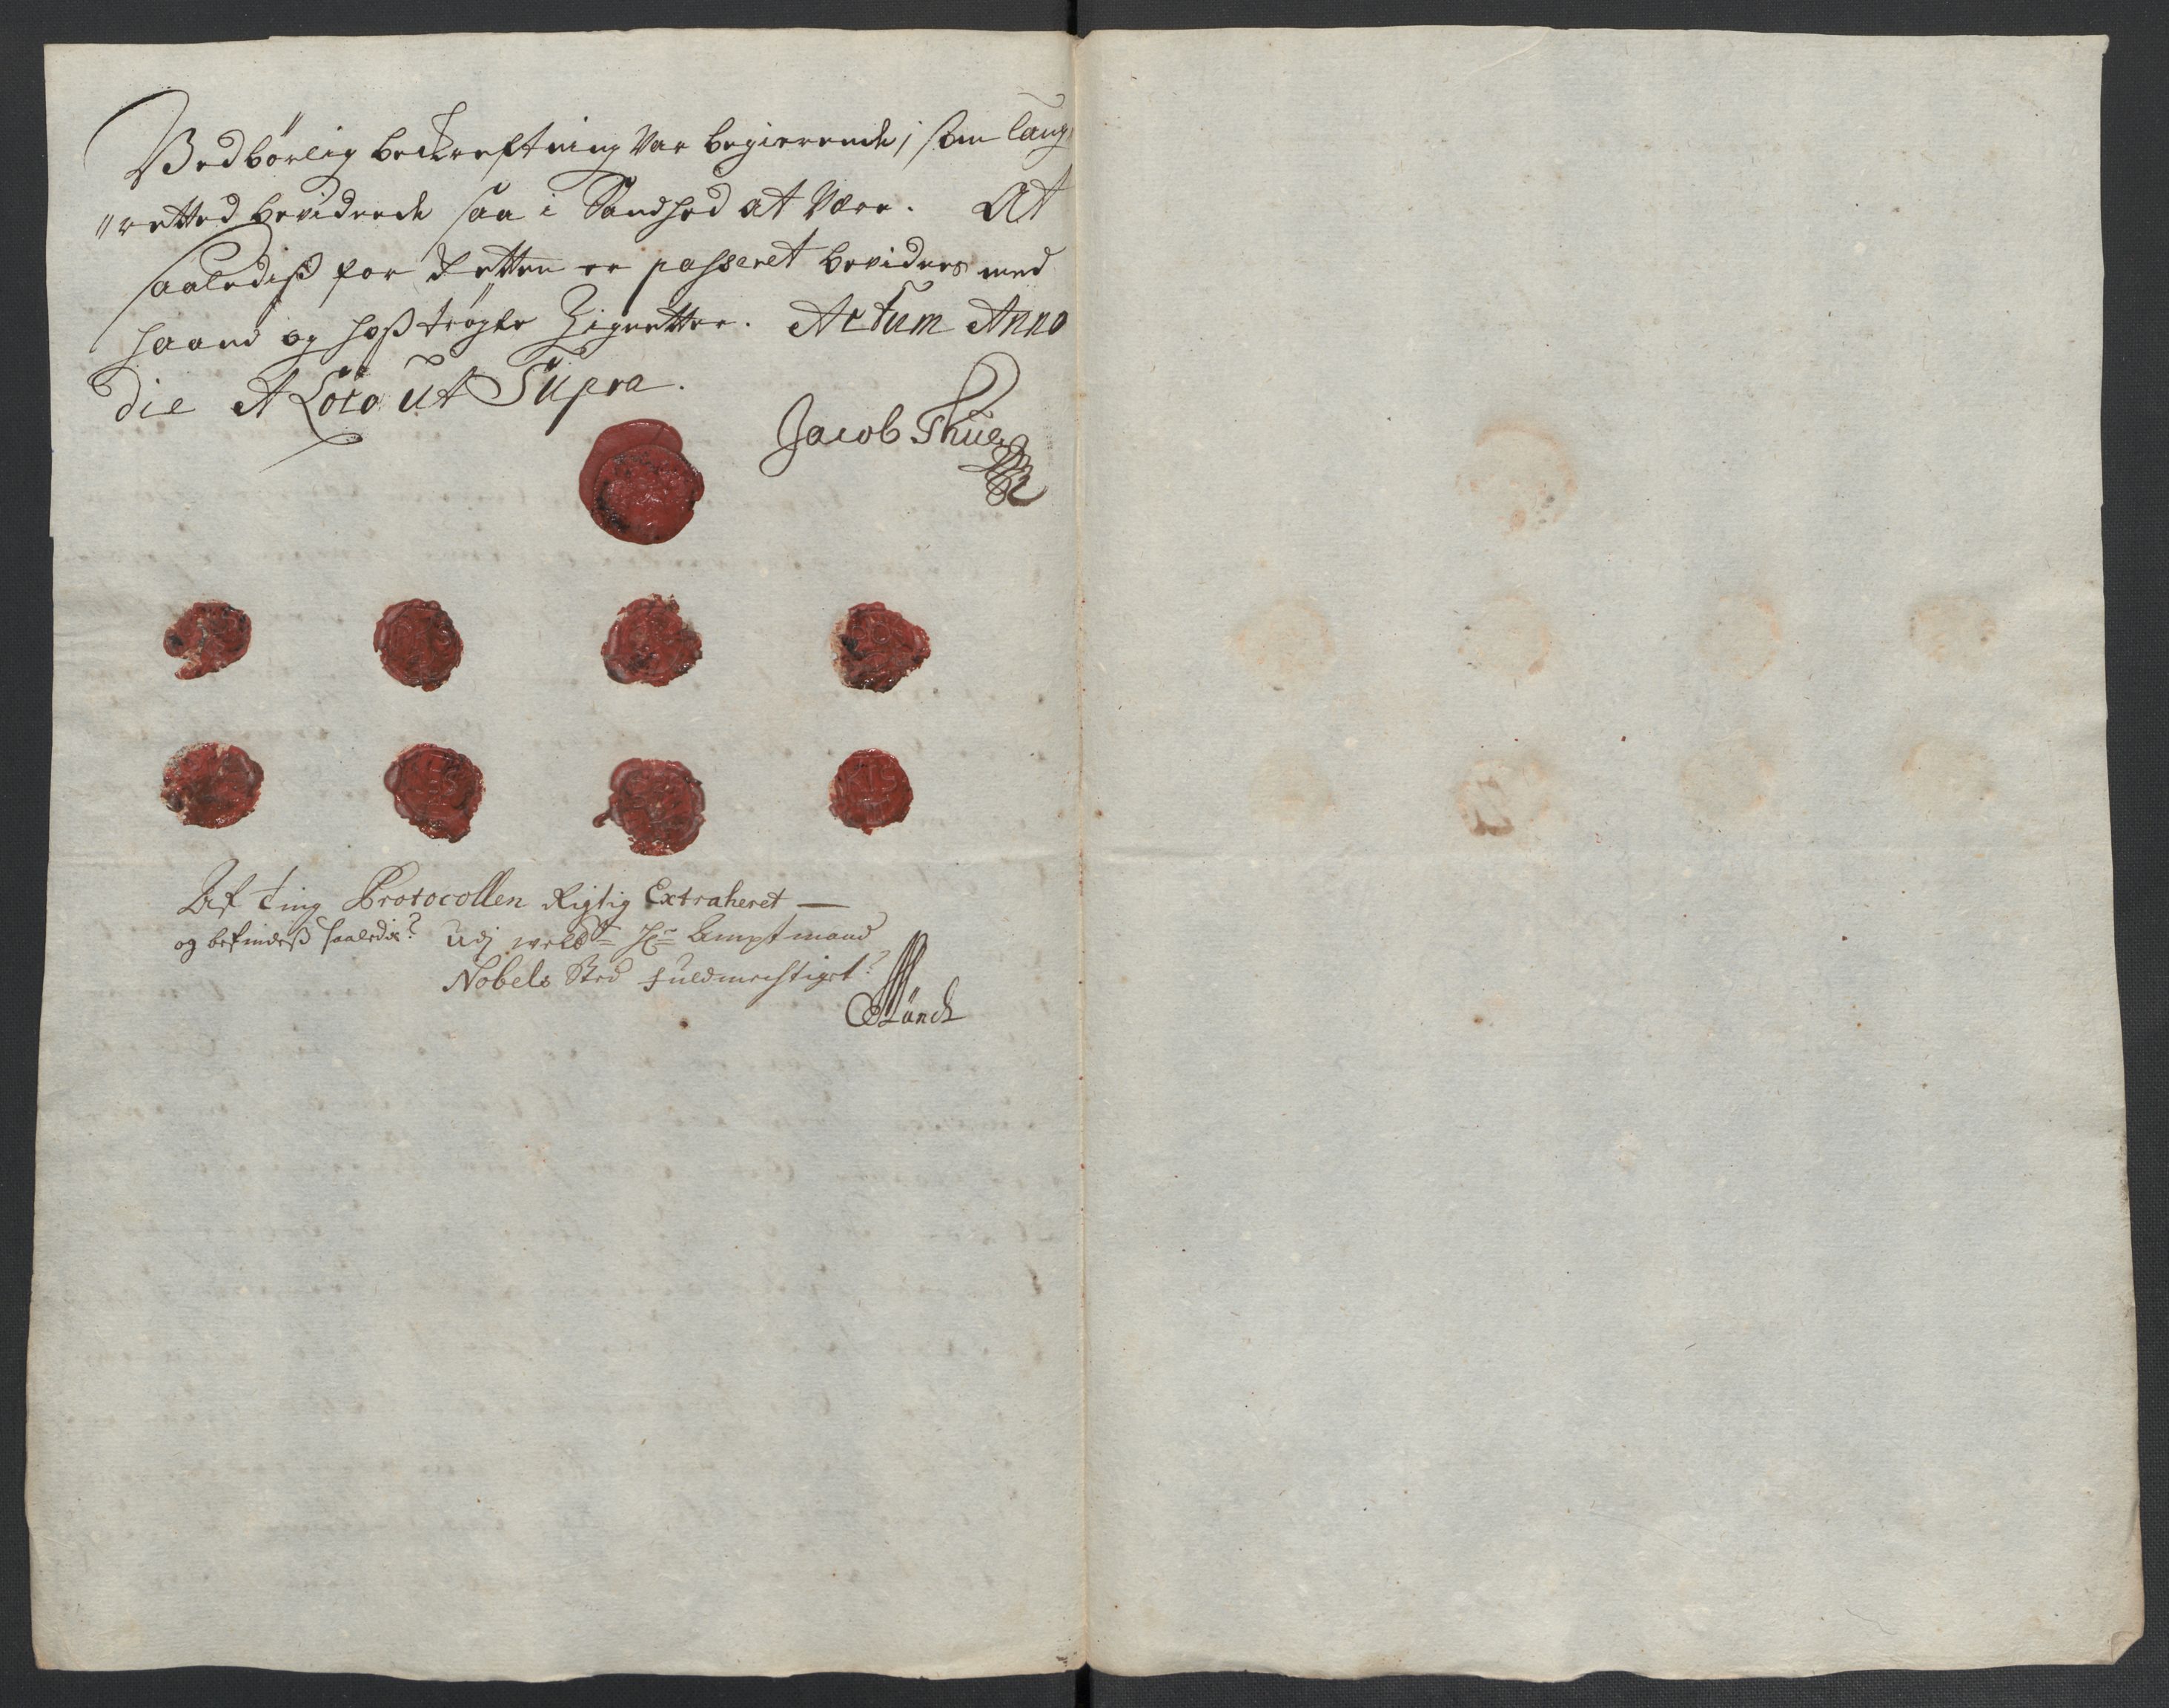 Wedbörlig bekreftning Var begierende, som laug¬
"retted bevidnede saa i Sandhed at Være. At
saaledis for Retten er passeret bevidnes med
haand og hoß trögte Zignetter. Actum Anno
die et Loco ut Supra.
Jacob Thue
Af Ting Protocollen Rigtig Extraheret —
og befindeß saaledis? Udj welb: Hr: Amptmand
Nobels Sted fuldmechtiget?
Münch